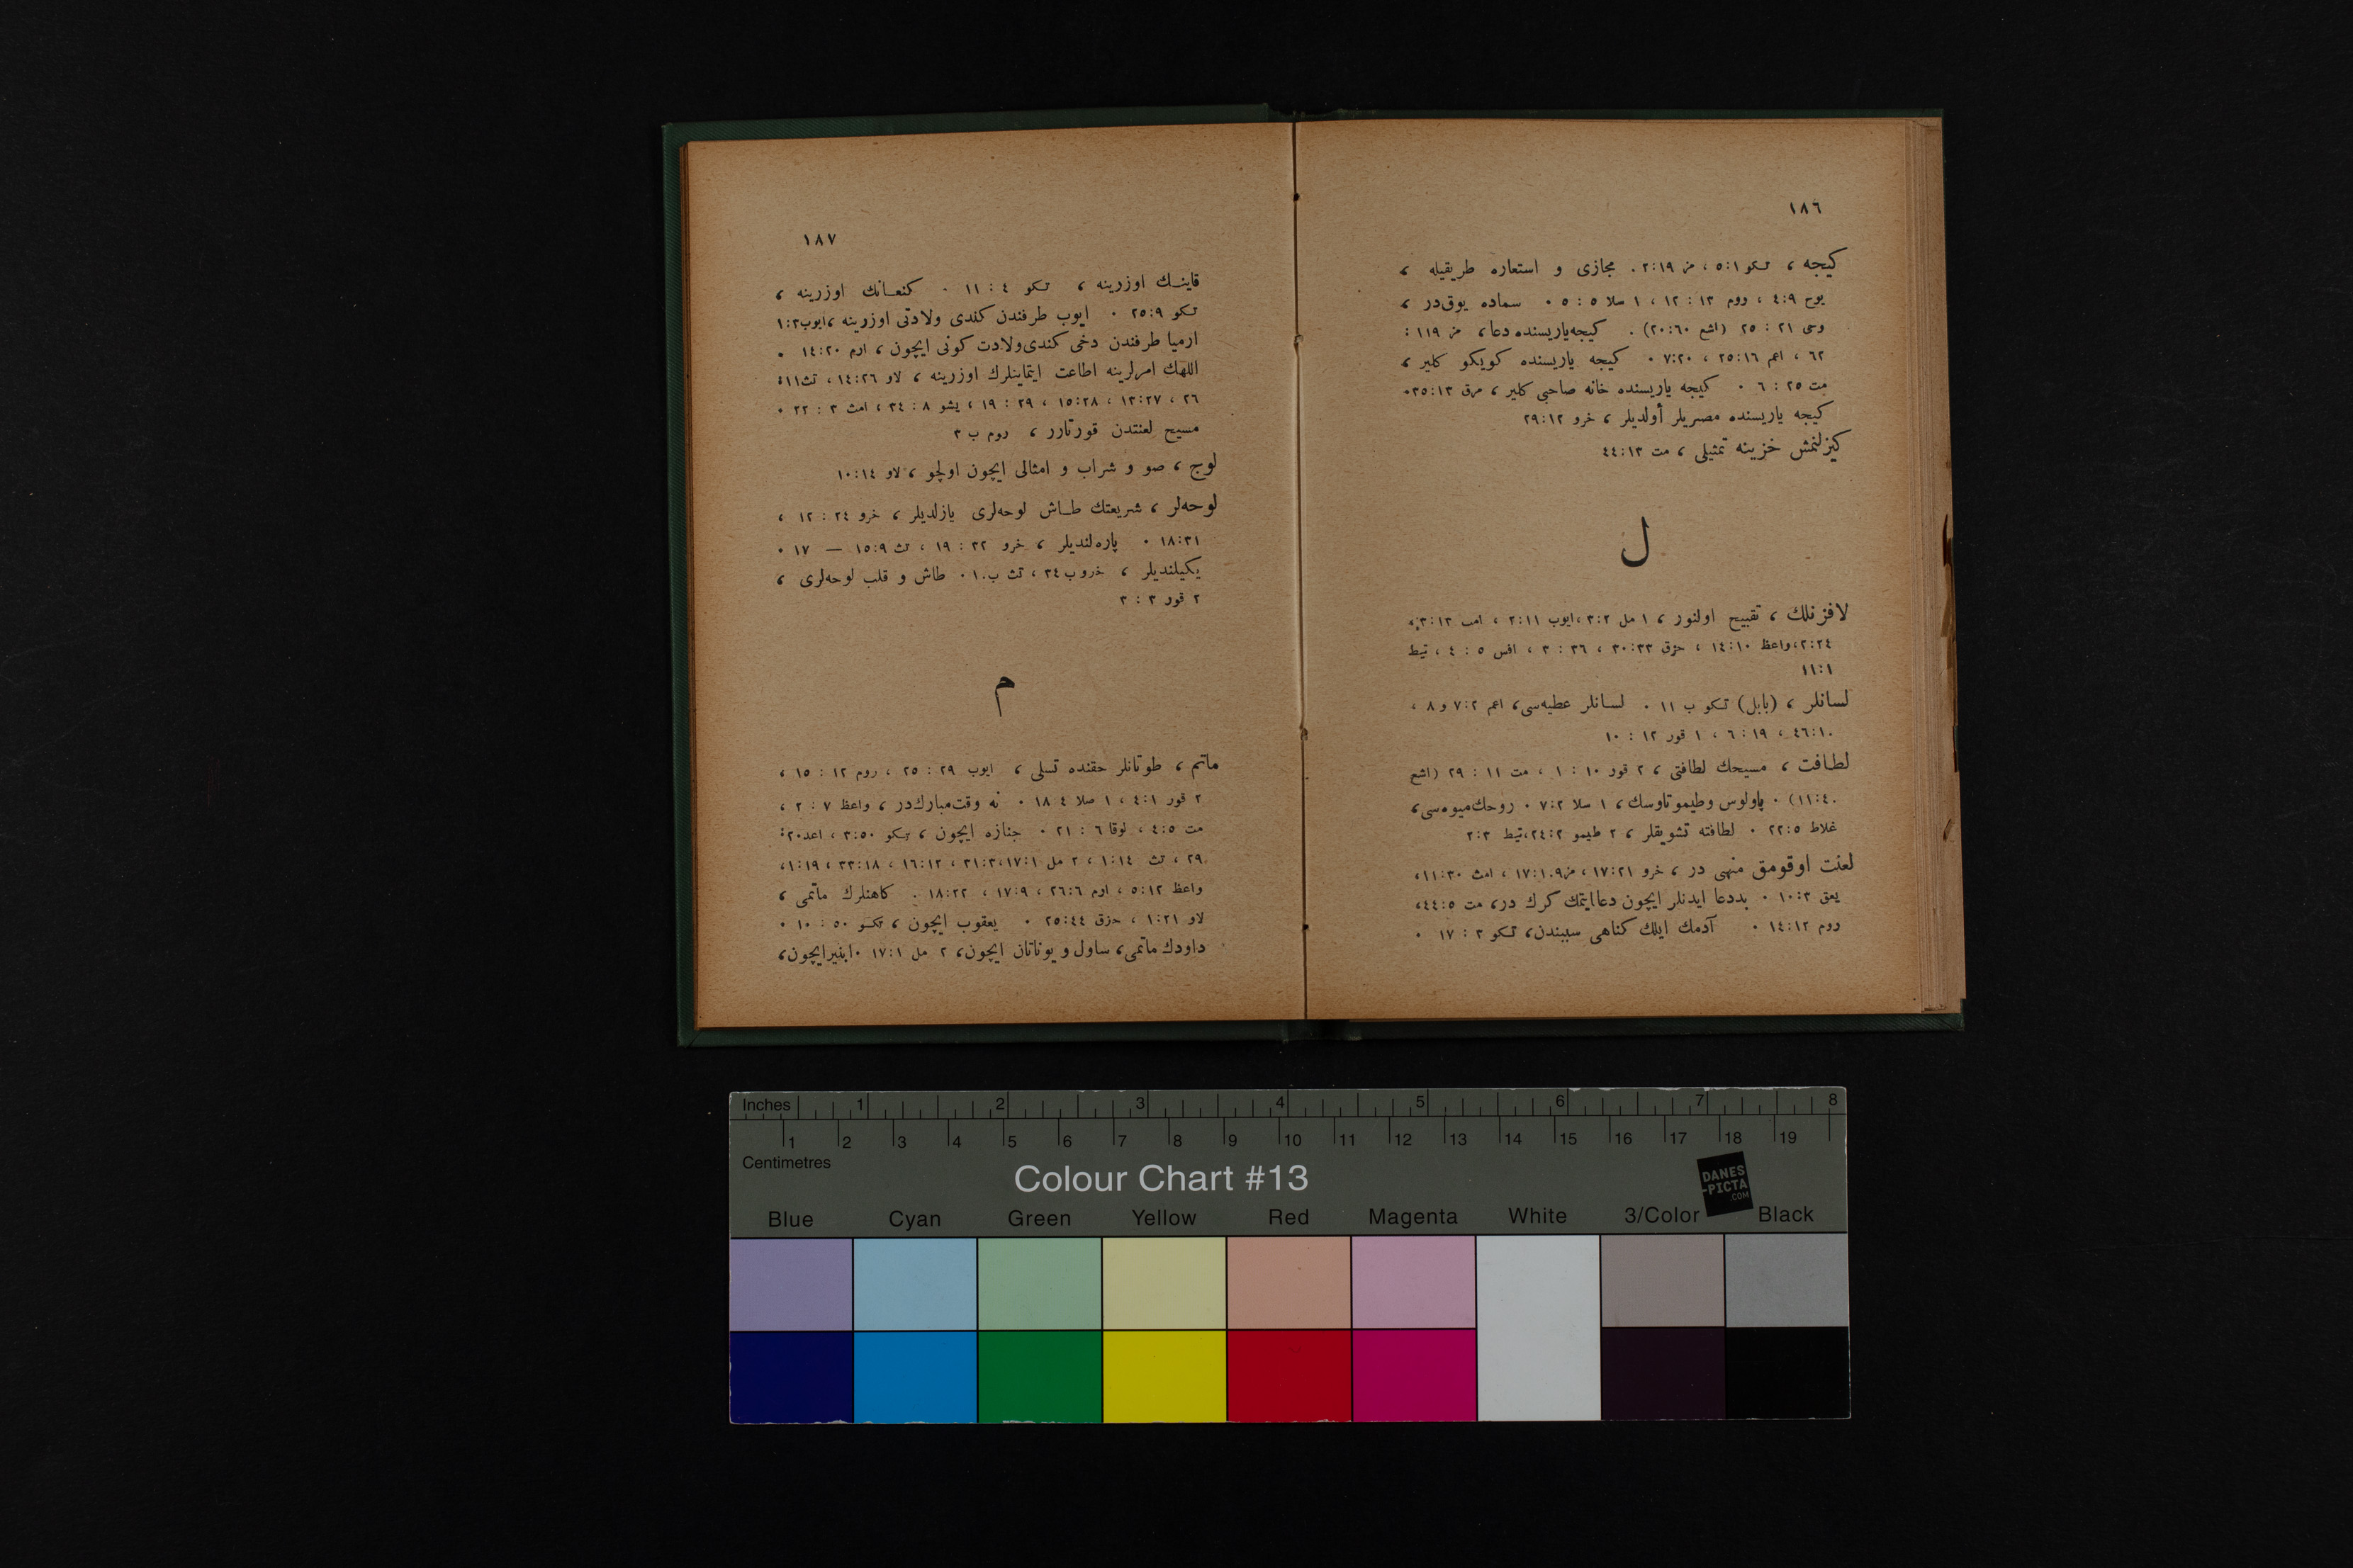 ١٨٦
كيجه ، تكو ٥:١ ، مز ٢:١٩ . مجازى و استعاره طريقيله ،
يوح ٤:٩ ، روم ١٣ : ١٢ ، ١ سلا ٥ : ٥ . سماده يوق‌در ،
وحى ٢١ : ٢٥ (اشع ٢٠:٦٠) . كيجه‌ياريسنده دعا ، مز ١١٩ :
٦٢ ، اعم ٢٥:١٦ ، ٧:٢٠ . كيجه ياريسنده كويكو كلير ،
مت ٢٥ : ٦ . كيجه ياريسنده خانه صاحبى كلير ، مرق ٣٥:١٣ .
كيجه ياريسنده مصريلر أولديلر ، خرو ٢٩:١٢
كيزلنمش خزينه تمثيلى ، مت ٤٤:١٣
ل
لافزنلك ، تقبيح اولنور ، ١ مل ٣:٢ ،ايوب ٢:١١ ، امث ٣:١٣ ،
٢:٢٤ ،واعظ ١٤:١٠ ، حزق ٣٠:٣٣ ، ٣٦ : ٣ ، افس ٥ : ٤ ، تيط
١١:١
لسانلر ، (بابل) تكو ب ١١ . لسانلر عطيه‌سى ، اعم ٧:٢ و ٨ ،
٤٦:١٠ ، ١٩ : ٦ ، ١ قور ١٢ : ١٠
لطافت ، مسيحك لطافتى ، ٢ قور ١٠ : ١ ، مت ١١ : ٢٩ (اشع
١١:٤٠) . پاولوس وطيموتاوسك ، ١ سلا ٧:٢ . روحك‌ميوه‌سى ،
غلاط ٢٢:٥ . لطافته تشويقلر ، ٢ طيمو ٢٤:٢ ،تيط ٢:٣
لعنت اوقومق منهى در ، خرو ١٧:٢١ ، مز١٧:١٠٩ ، امث ١١:٣٠ ،
يعق ١٠:٣ . بددعا ايدنلر ايچون دعاايتمك كرك در ، مت ٤٤:٥ ،
روم ١٤:١٢ . آدمك ايلك كناهى سببندن ، تكو ٣ : ١٧ .
١٨٧
قاينك اوزرينه ، تكو ٤ : ١١ . كنعانك اوزرينه ،
تكو ٢٥:٩ . ايوب طرفندن كندى ولادتى اوزرينه ،ايوب١:٣
ارميا طرفندن دخى كندى‌ولادت كونى ايچون ، ارم ١٤:٢٠ .
اللهك امرلرينه اطاعت ايتماينلرك اوزرينه ، لاو ١٤:٢٦ ، تث١١:
٢٦ ، ١٣:٢٧ ، ١٥:٢٨ ، ٢٩ : ١٩ ، يشو ٨ : ٣٤ ، امث ٣ : ٣٣ .
مسيح لعنتدن قورتارر ، روم ب ٣
لوج ، صو و شراب و امثالى ايچون اولچو ، لاو ١٠:١٤
لوحه‌لر ، شريعتك طاش لوحه‌لرى يازلديلر ، خرو ٢٤ : ١٢ ،
١٨:٣١ . پاره‌لنديلر ، خرو ٣٢ : ١٩ ، تث ١٥:٩ — ١٧ .
يكيلنديلر ، خروب ٣٤ ، تث ب١٠ . طاش و قلب لوحه‌لرى ،
٢ قور ٣ : ٣
م
ماتم ، طوتانلر حقنده تسلى ، ايوب ٢٩ : ٢٥ ، روم ١٢ : ١٥ ،
٢ قور ٤:١ ، ١ سلا ٤ : ١٨ . نه وقت‌مبارك‌در ، واعظ ٧ : ٢ ،
مت ٤:٥ ، لوقا ٦ : ٢١ . جنازه ايچون ، تكو ٣:٥٠ ، اعد٢٠:
٢٩ ، تث ١:١٤ ، ٢ مل ١٧:١ ،٣١:٣ ، ١٦:١٢ ، ٣٣:١٨ ، ١:١٩ ،
واعظ ٥:١٢ ، ارم ٢٦:٦ ، ١٧:٩ ، ١٨:٢٢ . كاهنلرك ماتمى ،
لاو ١:٢١ ، حزق ٢٥:٤٤ . يعقوب ايچون ، تكو ٥٠ : ١٠ .
داودك ماتمى ، ساول و يوناتان ايچون ، ٢ مل ١٧:١ .ابنيرايچون ،
Inches 1 2 3 4 5 6 7 8
1 2 3 4 5 6 7 8 9 10 11 12 13 14 15 16 17 18 19
Centimetres
Colour Chart #13
DANES
-PICTA
.COM
Blue Cyan Green Yellow Red Magenta White 3/Color Black